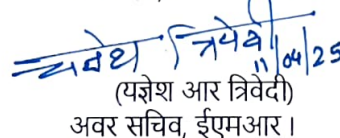 यज्ञेश त्रिवेदी
11/04/25
(यज्ञेश आर त्रिवेदी)
अवर सचिव, ईएमआर।